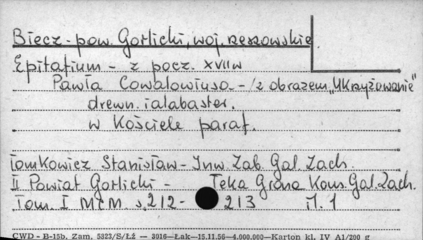 Biecz - pow. Gorlicki, woj. rzeszowskie
Epitafium - z pocz. XVII w
Pawła Cowalowiusa - /z obrazem "Ukrzyżowanie"
drewn. i alabaster.
w Kościele paraf.
Tomkowicz Stanisław - Inw. Zab. Gal. Zach.
II Powiat Gorlicki - Teka Grona Kons. Gal. Zach.
Tom. I s. 212 - 213 il. 1
CWD - B-15b, Zam. 5323/S/Łż — 3016—Łak—15.11.56—4.000.000—Karton kl. IV A1/200 g